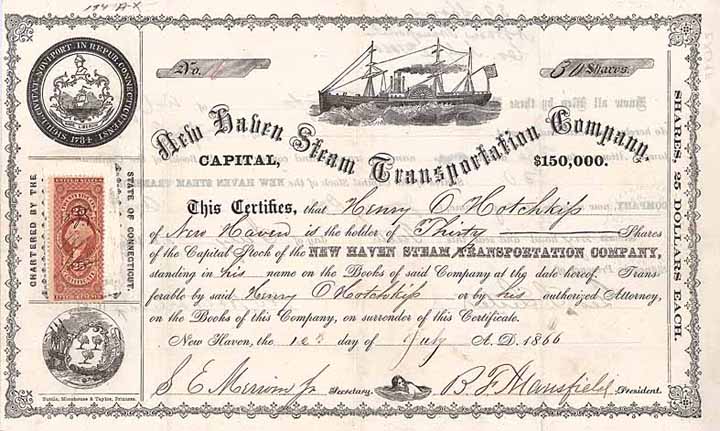 No.
Shares.
New Haven Steam Transportation Company,
CAPITAL,
$150,000.
This Certifies, that Henry O Hotchkiss
of New Haven is the holder of Thirty Shares
of the Capital Stock of the NEW HAVEN STEAM TRANSPORTATION COMPANY,
standing in his name on the Books of said Company at the date hereof. Trans
ferable by said Henry O Hotchkiss or by his authorized Attorney,
on the Books of this Company, on surrender of this Certificate.
New Haven, the day of July A.D. 1866
S E Merwin Jr Secretary. B. F. Mansfield, President.
1784
CHARTERED BY THE
STATE OF CONNECTICUT.
25
SHARES, 25 DOLLARS EACH.
Tuttle, Morehouse & Taylor, Printers.